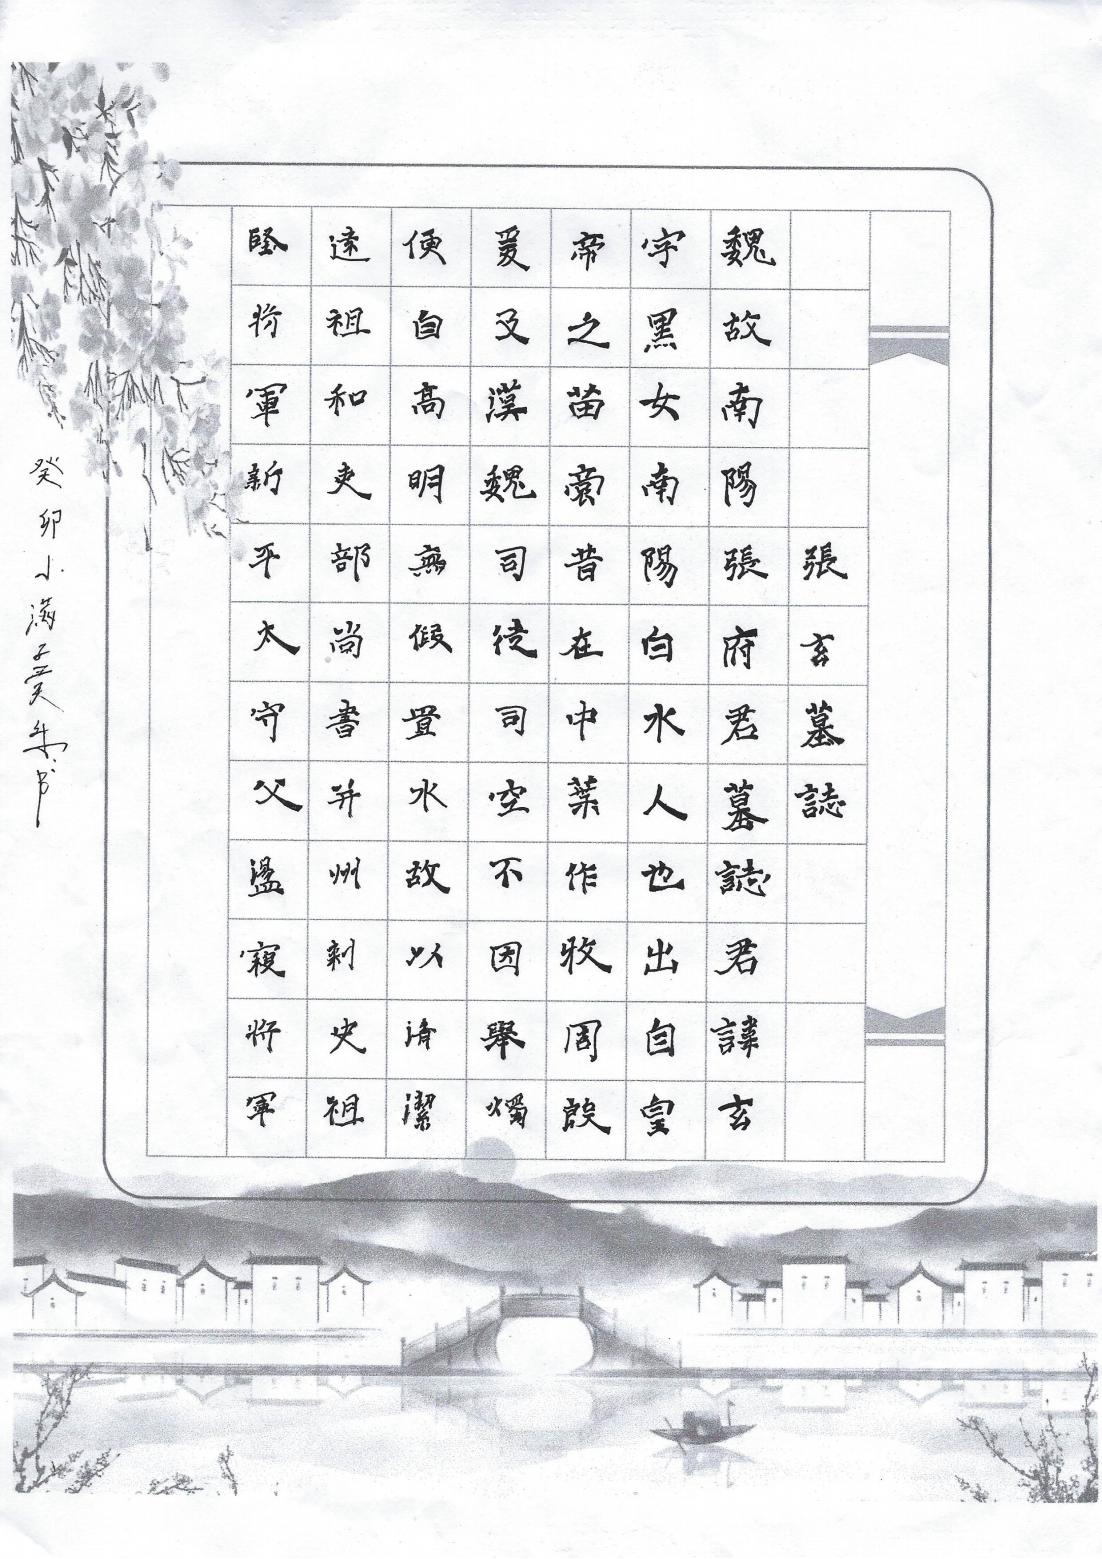 張玄墓誌
魏故南陽張府君墓誌君諱玄
字黑女南陽白水人也出自皇
帝之苗裔昔在中葉作牧周殷
爰及漢魏司徒司空不因舉燭
便自高明無假置水故以清潔
遠祖和吏部尚書并州刺史祖
堅將軍新平太守父盪寇將軍
癸卯小滿